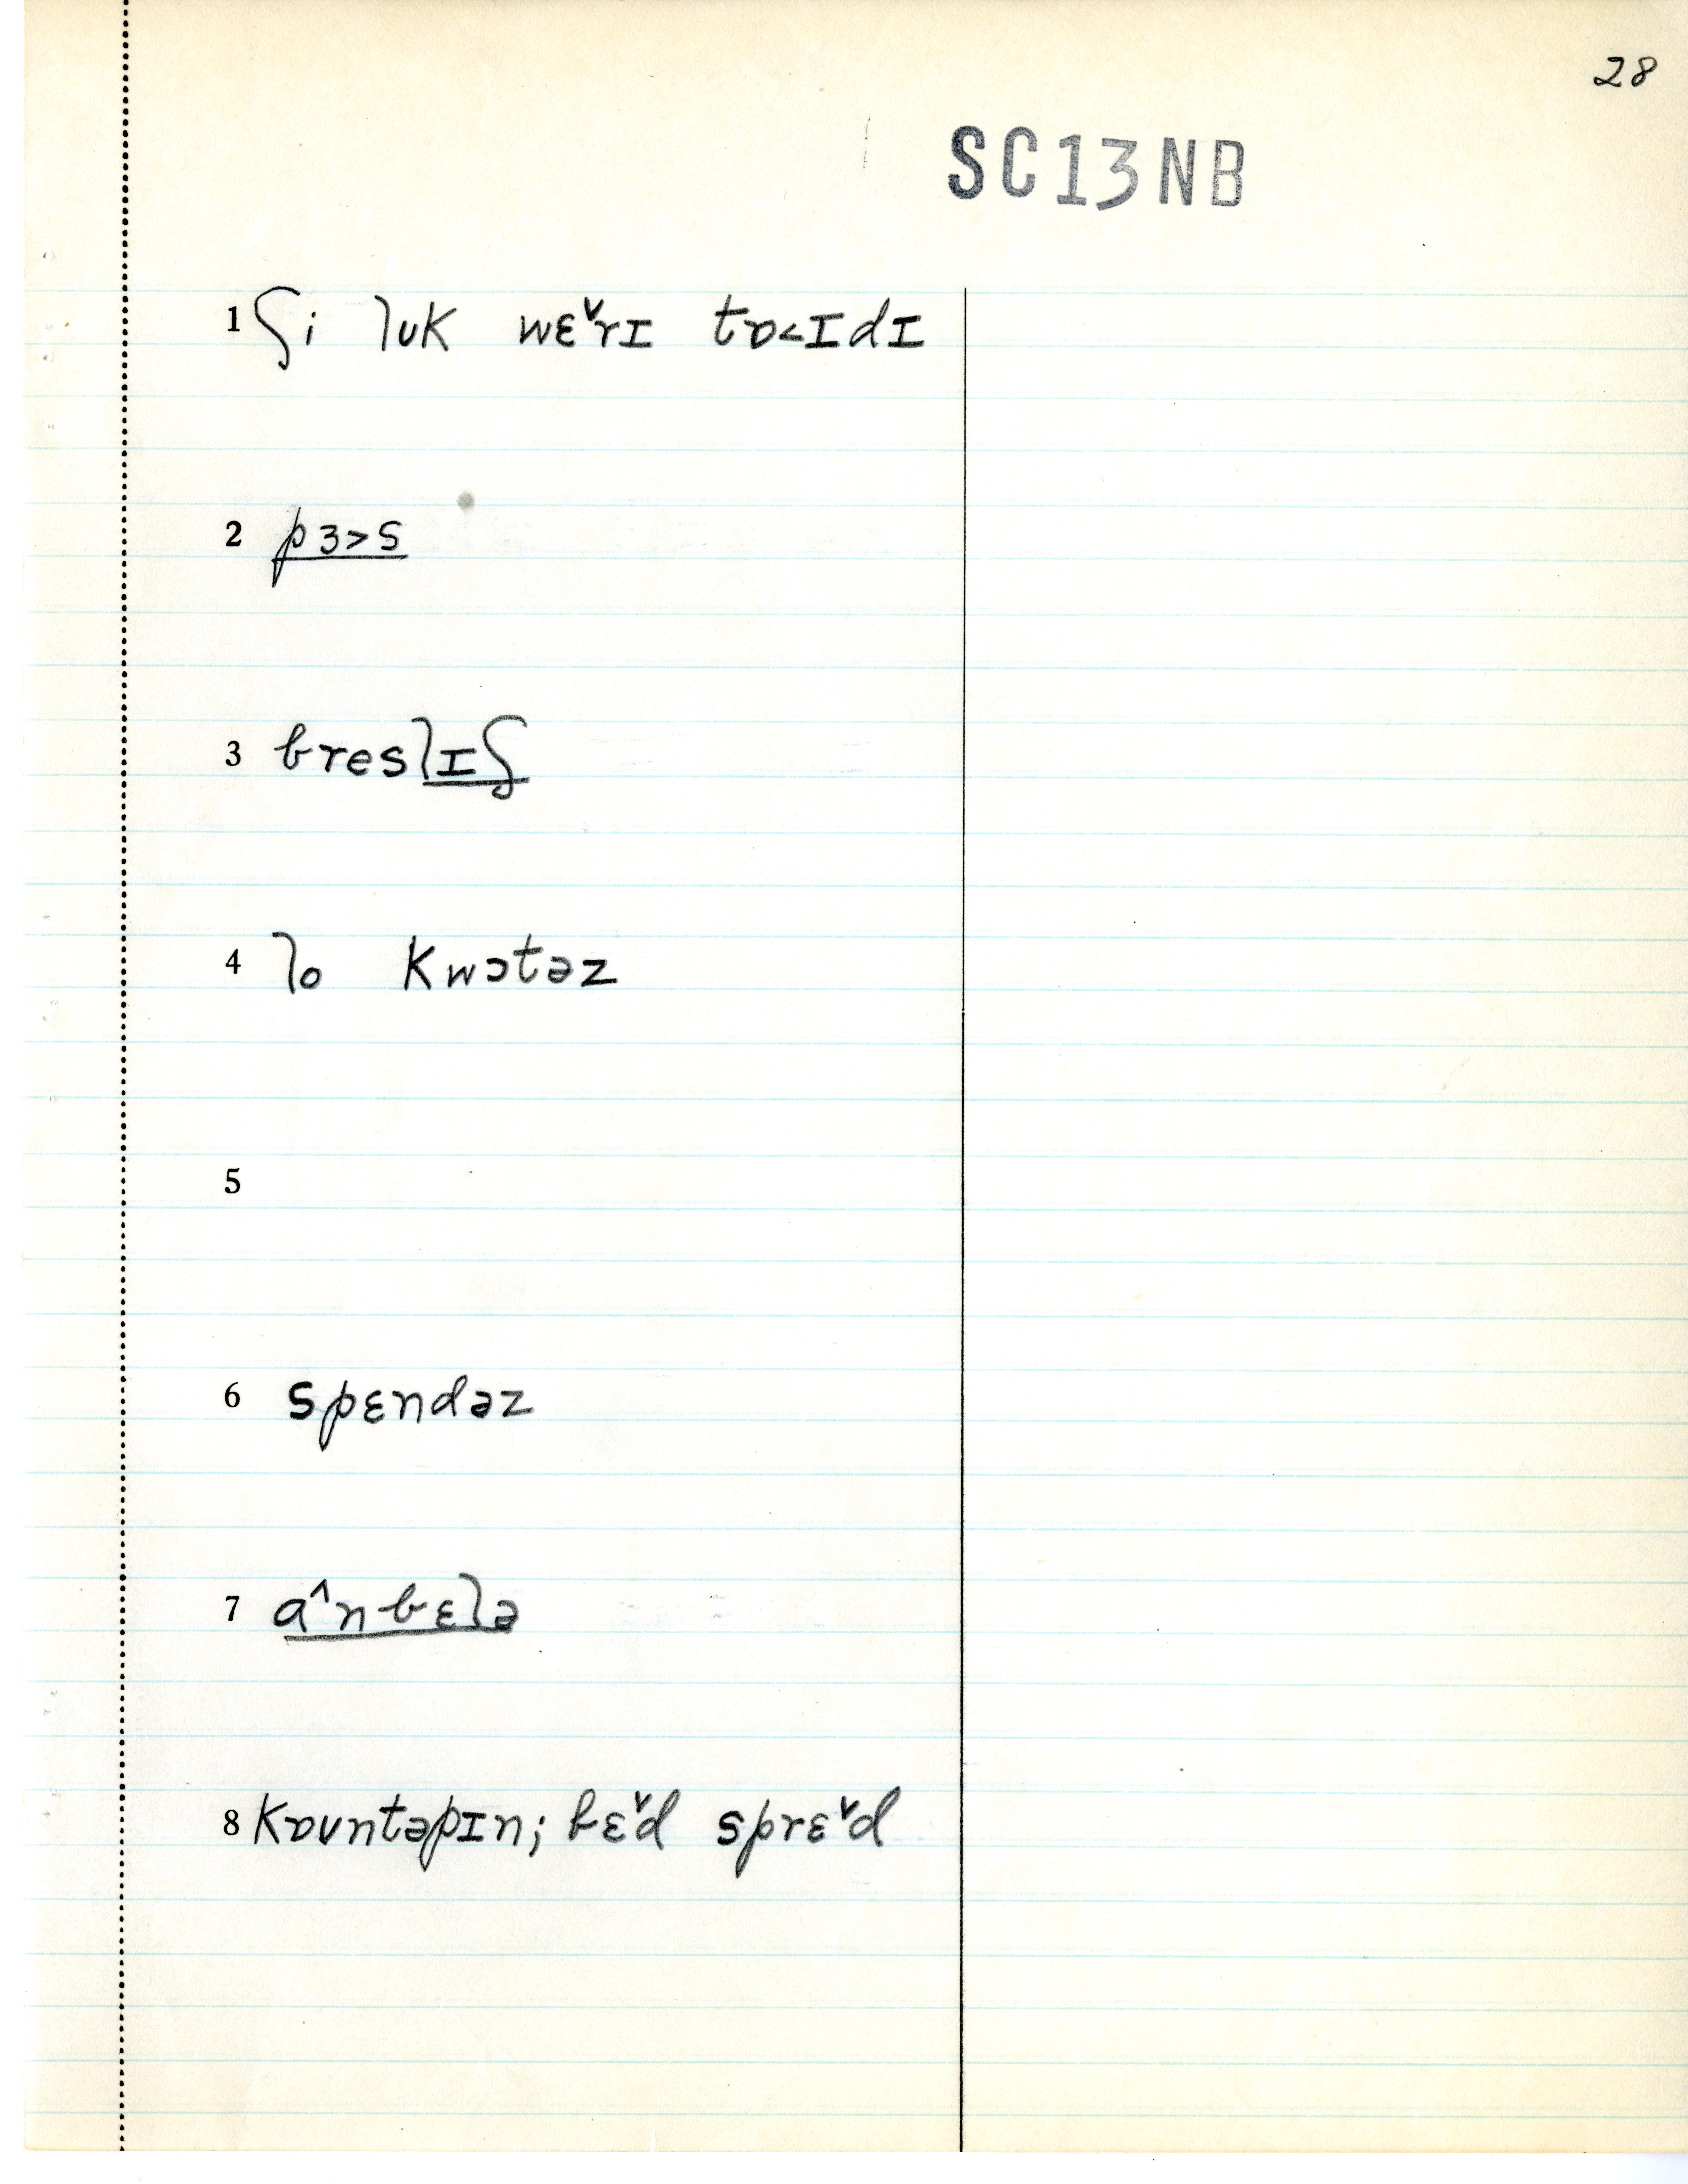 28
SC13NB
1 ʃi lʊk wɛ˅rɪ tɒ<ɪdɪ
2 pɜ>s
3 breslɪʃ
4 lo kwɔtəz
5
6 spɛndəz
7 a^nbɛlə
8 kɒʊntəpɪn; bɛ˅d sprɛ˅d